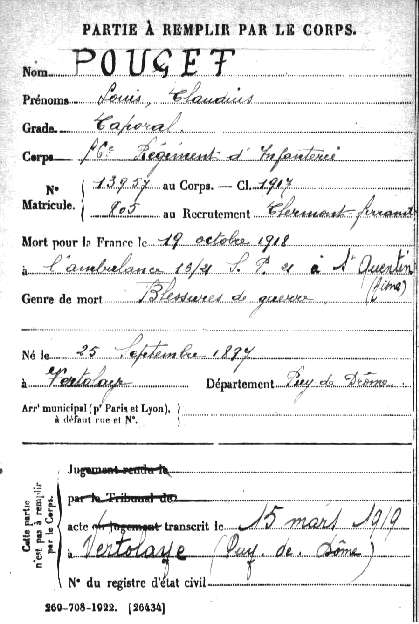 PARTIE À REMPLIR PAR LE CORPS.
Nom POUGET
Prénoms Louis, Claudius
Grade Caporal.
Corps 16e Régiment d'Infanterie
N° Matricule. 13957 au Corps. — Cl. 1917
905 au Recrutement Clermont ferrand
Mort pour la France le 19 octobre 1918
à l'ambulance 13/21 S. P. 21 à St Quentin
(Aisne)
Genre de mort Blessures de guerre
Né le 25 Septembre 1897
à Vertolaye Département Puy de Dôme.
Arrt municipal (pr Paris et Lyon),
à défaut rue et N°.
Cette partie n'est pas à remplir par le Corps.
Jugement rendu le
par le Tribunal de
acte ou jugement transcrit le 15 mars 1919
à Vertolaye (Puy. de. Dôme)
N° du registre d'état civil
269-708-1922. [26434]